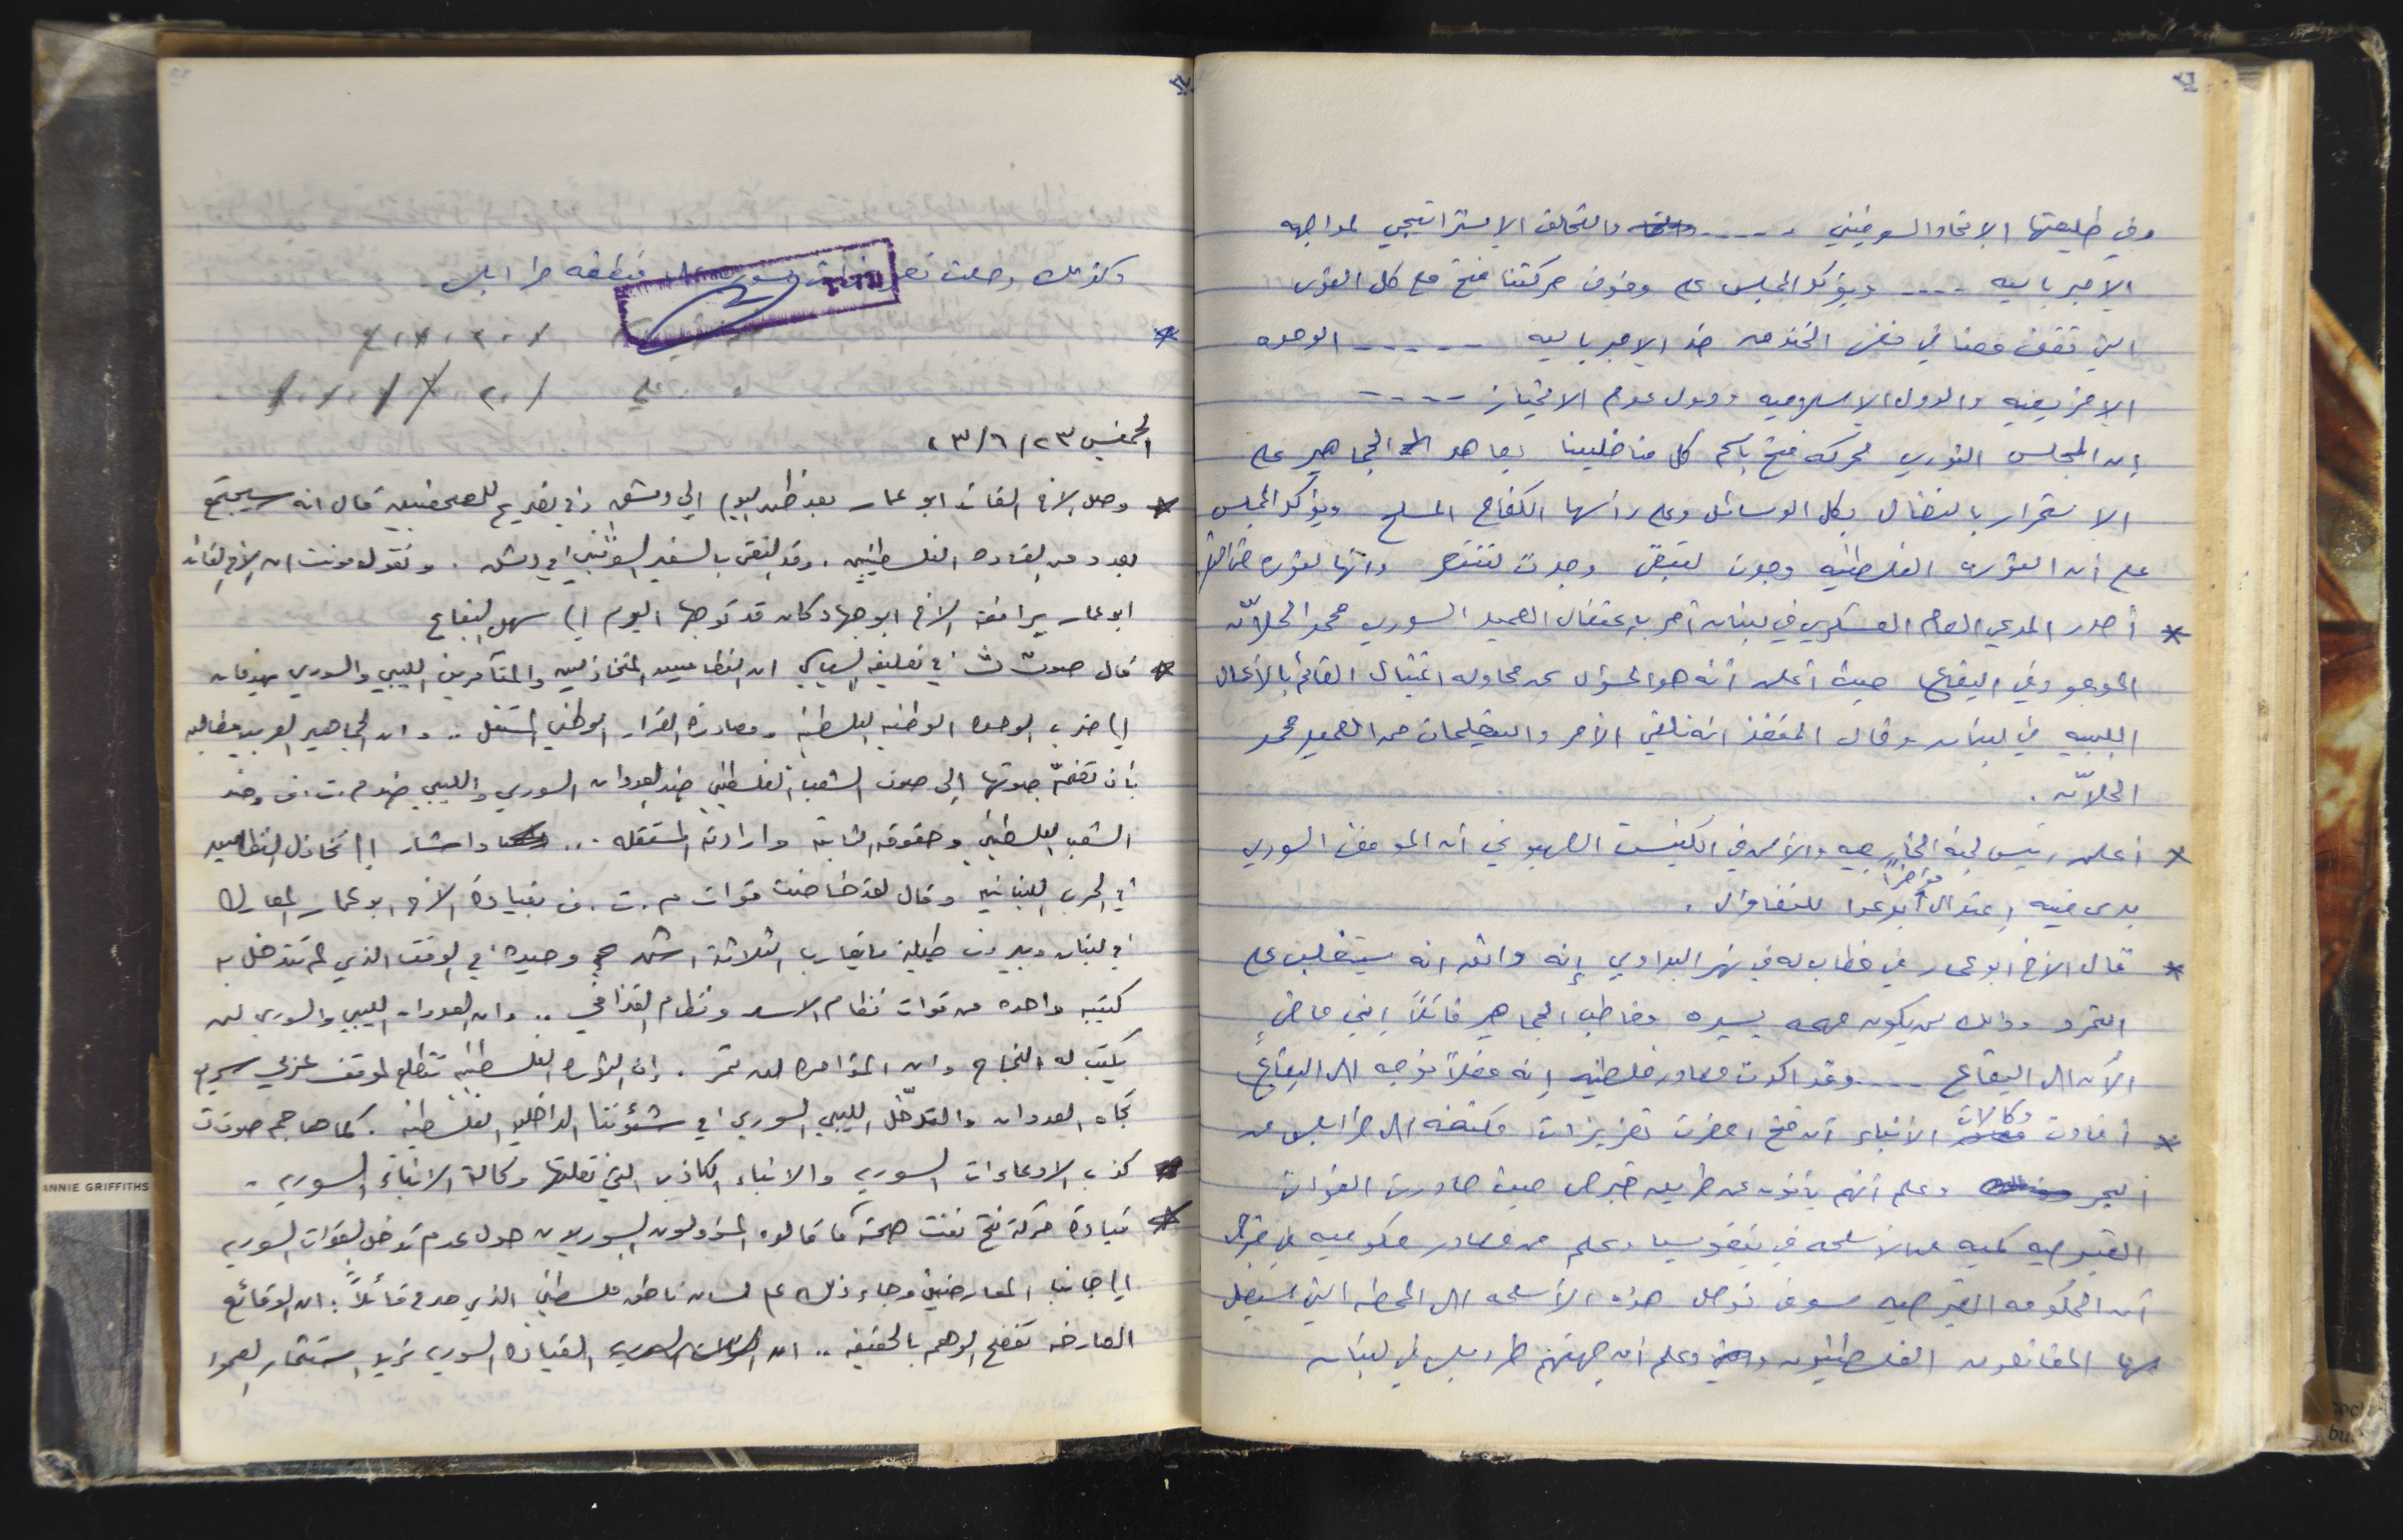 وفي طليعتها الاتحاد السوفيتي ..... والتحالف الاستراتيجي لمواجهه
الامبرياليه .... ويؤكد المجلس على وقوف حركتنا فتح مع كل القوى
التي تقف معنا في نفس الخندق ضد الامبرياليه ...... الوحده
الافريقيه والدول الاسلاميه ودول عدم الانحياز ....
إن المجلس الثوري لحركه فتح باسم كل مناضلينا يعاهد الجماهير على
الاستمرار بالنضال بكل الوسائل وعلى رأسها الكفاح المسلح ويؤكد المجلس
على أن الثوره الفلسطينيه وجدت لتبقى وجدت لتنتصر وانها لثوره حتى النصر
* أصدر المدعي العام العسكري في لبنان أمر باعتقال العميد السوري محمد الحلاّق
الموجود في البقاع حيث أعلن أنه هو المسؤول عن محاوله اغتيال القائم بالأعمال
الليبيه في لبنان وقال المنفذ انه تلقى الأمر والتعليمات من العميد محمد
الحلاّق .
* أعلن رئيس لجنه الخارجيه والأمن في الكنيست الصهيوني أن الموقف السوري
مؤخراً
يدعى فيه إعتدال يدعوا للتفاؤل .
* قال الأخ ابو عمار في خطاب له في نهر البداوي إنه واثق انه سيتغلب على
التمرد وذلك سيكون مهمه يسيره وخاطب الجماهير قائلاً إنني ماضٍ
الآن الى البقاع .... وقد اكدت مصادر فلسطينيه إنه فعلاً توجه الى البقاع
* أفادت وكالات الأنباء أن فتح احضرت تعزيزات مكثفه الى طرابلس من
البحر وعلم أنهم يأتون عن طريق قبرص حيث صادرت القوات
القبرصيه كميه من الأسلحه في نيقوسيا وعلم من مصادر حكوميه في قبرص
أن الحكومه القبرصيه سوف توصل هذه الأسلحه الى المحطه التي سيصل
بها المقاتلون الفلسطينيون وعلم أن جهتهم طرابلس في لبنان
وكذلك وصلت منطقه طرابلس
*
الخميس ٢٣/٦/
* وصل الاخ القائد ابو عمار بعد ظهر اليوم الى دمشق وفي تصريح للصحفيين قال انه سيجتمع
بعدد من القاده الفلسطينيين . وقد التقى بالسفير السوفيتي في دمشق . وتقول مونت ان الاخ القائد
ابو عمار يرافقه الاخ ابو جهاد كان قد توجها اليوم الى سهل البقاع
* قال صوت ف في تعليقه السياسي ان النظامين المتخاذلين والمتآمرين الليبي والسوري يهدفان
الى ضرب الوحده الوطنيه الفلسطينيه ومصادرة القرار الوطني المستقل .. وان الجماهير العربيه مطالبه
بأن تضمّ صوتها إلى صوت الشعب الفلسطيني ضد العدوان السوري والليبي ضد م.ت.ف وضد
الشعب الفلسطيني وحقوقه الثابته وارادته المستقله ... واشار الى تخاذل النظامين
في الحرب اللبنانيه وقال لقد خاضت قوات م.ت.ف بقيادة الاخ ابو عمار المعارك
في لبنان وبيروت طيلة ما يقارب الثلاثة اشهر وحيده في الوقت الذي لم تتدخل به
كتيبه واحده من قوات نظام الاسد ونظام القذافي .. وان العدوان الليبي والسوري لن
يكتب له النجاح وان المؤامره لن تمر . وإن الثوره الفلسطينيه تتطلع لموقف عربي سريع
تجاه العدوان والتدخّل الليبي السوري في شؤوننا الداخليه الفلسطينيه . كما هاجم صوت ف
كذب الادعاءات السوريه والانباء الكاذبه التي نقلتها وكالة الانباء السوريه .
* قيادة حركة فتح نفت صحة ما قالوه المسؤولون السوريون حول عدم تدخل القوات السوريه
الى جانب المعارضين وجاء ذلك على لسان ناطق فلسطيني الذي صرح قائلاً : ان الوقائع
العارضه تفضح الوهم بالحقيقه .. ان القيادة السوريه تريد استثمار
ANNIE GRIFFITHS